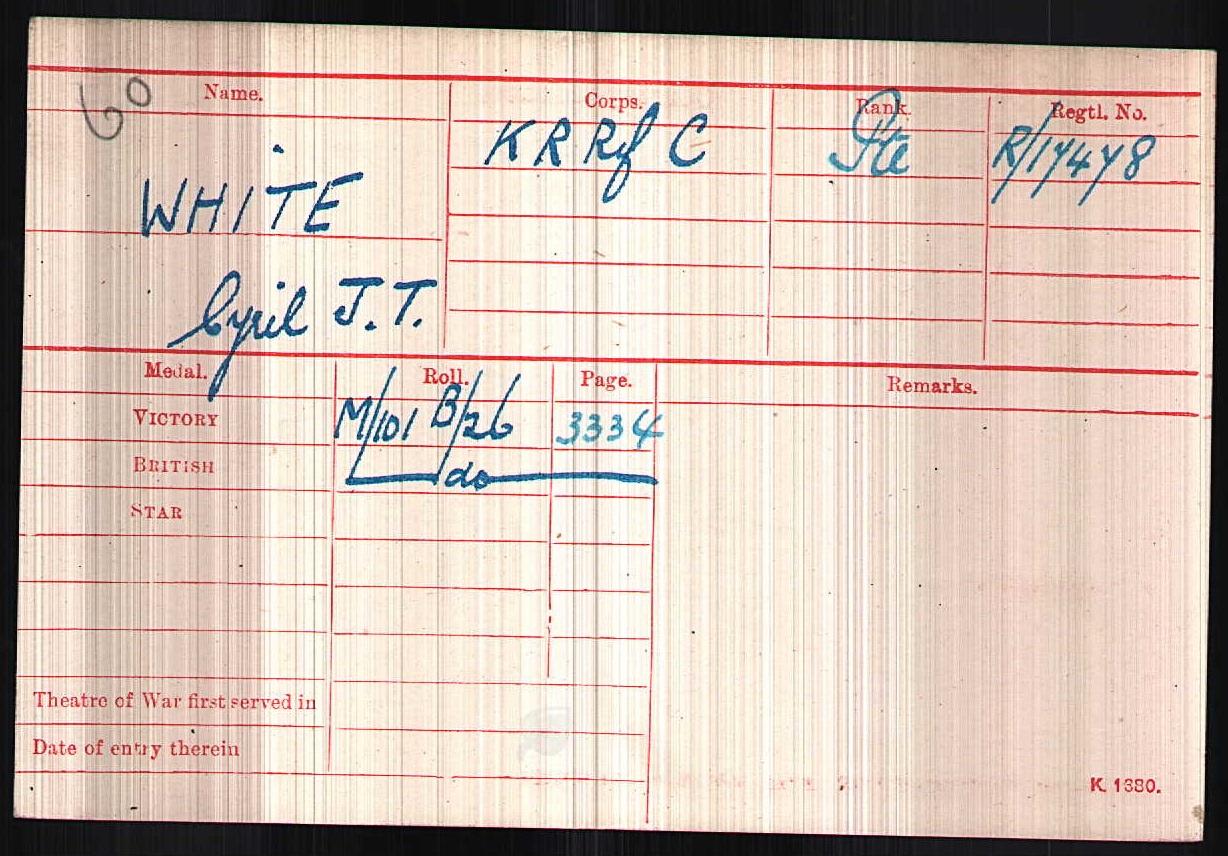 60
Name. Corps. Rank. Regtl. No.
KRRif C Pte R/17478
WHITE
Cyril J.T.
Medal. Roll. Page. Remarks.
VICTORY M/101 B/26 3334
BRITISH do
STAR
Theatre of War first served in
Date of entry therein
K. 1380.